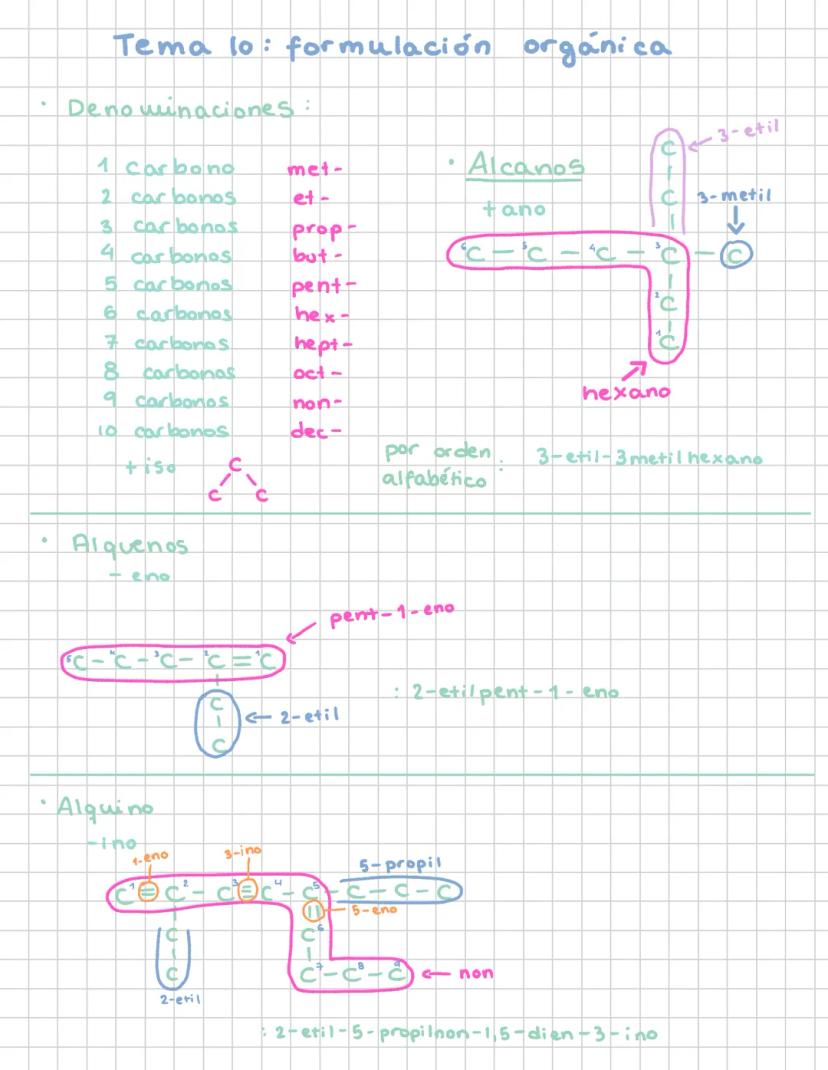 Tema 10: formulación orgánica
· Denominaciones:
1 carbono met-
2 carbonos et-
3 carbonos prop-
4 carbonos but-
5 carbonos pent-
6 carbonos hex-
7 carbonos hept-
8 carbonos oct-
9 carbonos non-
10 carbonos dec-
+ iso
C
C C
· Alcanos
+ ano
3-etil
C
C
3-metil
⁶C - ⁵C - ⁴C - ³C - C
²C
¹C
hexano
por orden alfabético : 3-etil-3metilhexano
· Alquenos
- eno
pent-1-eno
⁵C - ⁴C - ³C - ²C = ¹C
C
C
2-etil
: 2-etilpent-1-eno
· Alquino
-ino
1-eno
3-ino
5-propil
C¹ = C² - C³ ≡ C⁴ - C⁵ - C - C - C
5-eno
C C⁶
C C⁷ - C⁸ - C⁹
non
2-etil
: 2-etil-5-propilnon-1,5-dien-3-ino